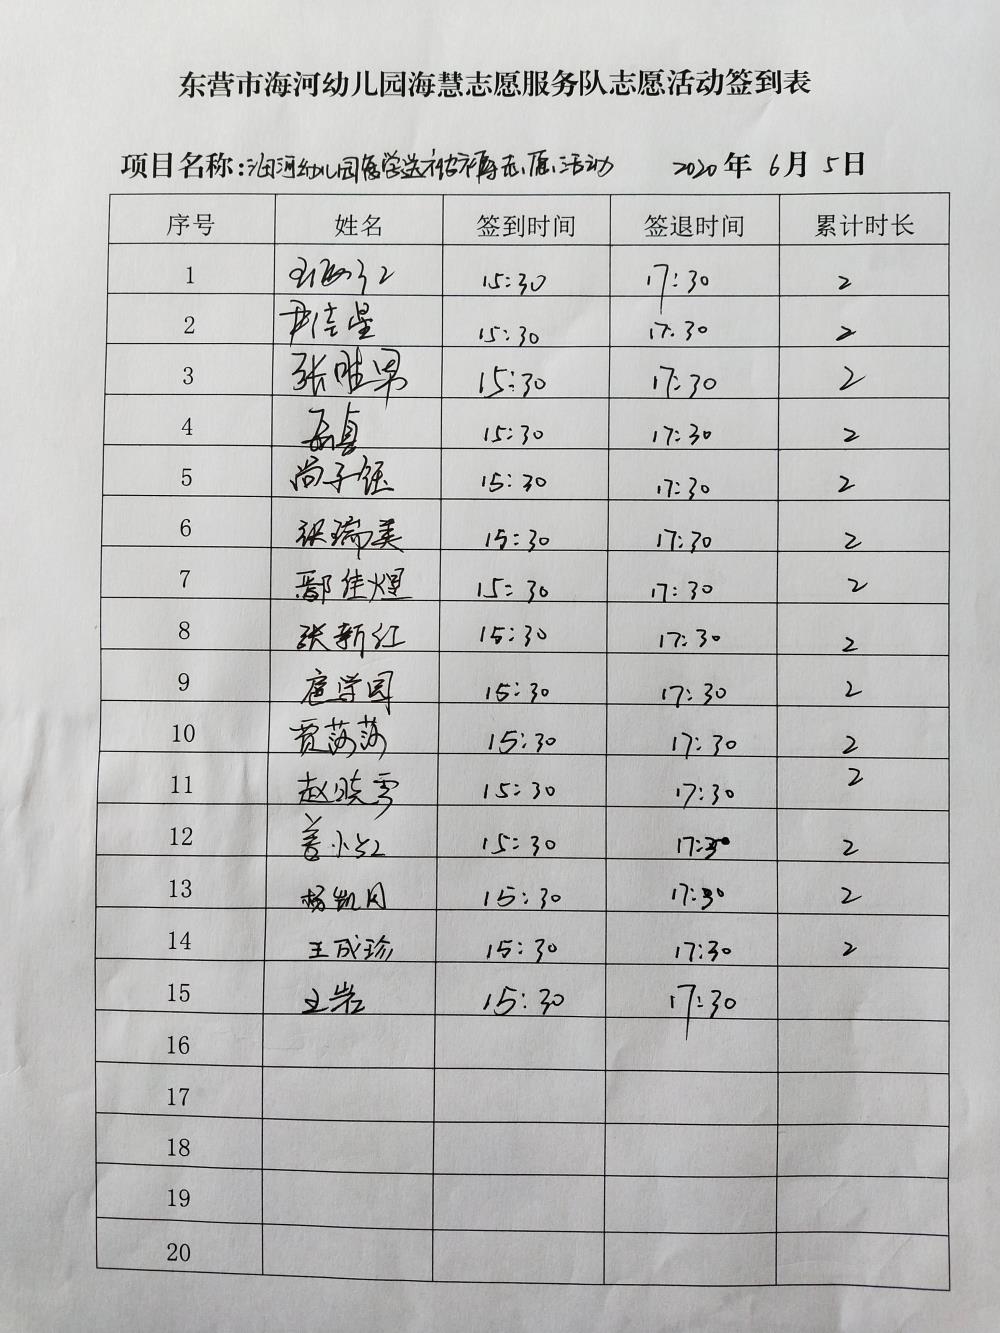 东营市海河幼儿园海慧志愿服务队志愿活动签到表
项目名称:海河幼儿园 志愿活动 2020年6月5日
序号 姓名 签到时间 签退时间 累计时长
1 15:30 17:30 2
2 尹佳星 15:30 17:30 2
3 张胜男 15:30 17:30 2
4 15:30 17:30 2
5 尚子钰 15:30 17:30 2
6 张瑞美 15:30 17:30 2
7 鄢佳煜 15:30 17:30 2
8 张新红 15:30 17:30 2
9 扈学园 15:30 17:30 2
10 贾莎莎 15:30 17:30 2
11 赵晓雪 15:30 17:30 2
12 姜小红 15:30 17:30 2
13 杨凯月 15:30 17:30 2
14 王成珍 15:30 17:30 2
15 王岩 15:30 17:30
16
17
18
19
20